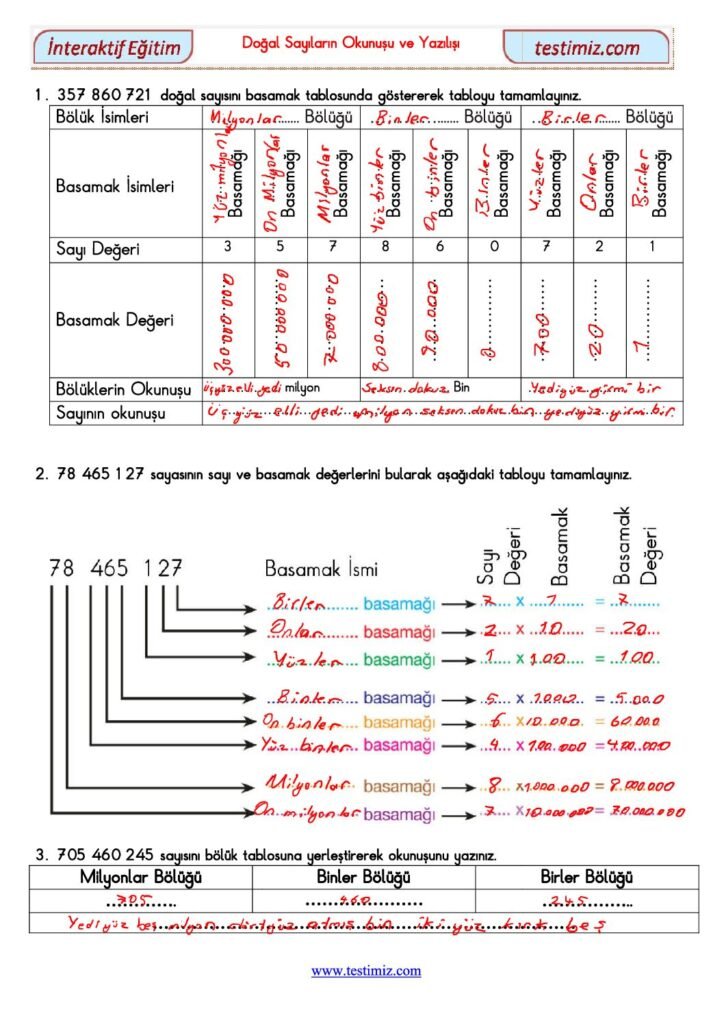 İnteraktif Eğitim
Doğal Sayıların Okunuşu ve Yazılışı
testimiz.com
1. 357 860 721 doğal sayısını basamak tablosunda göstererek tabloyu tamamlayınız.
Bölük İsimleri Milyonlar...... Bölüğü ..Binler......... Bölüğü ..Birler...... Bölüğü
Basamak İsimleri Yüz milyonlar Basamağı On Milyonlar Basamağı Milyonlar Basamağı Yüz binler Basamağı On binler Basamağı Binler Basamağı Yüzler Basamağı Onlar Basamağı Birler Basamağı
Sayı Değeri 3 5 7 8 6 0 7 2 1
Basamak Değeri 300.000.000 50.000.000 7.000.000 800.000 90.000 0 700 20 1
Bölüklerin Okunuşu üçyüz elli yedi milyon Seksen dokuz Bin Yediyüz yirmi bir
Sayının okunuşu Üç yüz elli yedi milyon seksen dokuz bin yediyüz yirmi bir
2. 78 465 127 sayasının sayı ve basamak değerlerini bularak aşağıdaki tabloyu tamamlayınız.
78 465 127 Basamak İsmi Sayı Değeri Basamak Basamak Değeri
Birler basamağı 7 x 1 = 7
Onlar basamağı 2 x 10 = 20
Yüzler basamağı 1 x 100 = 100
Binler basamağı 5 x 1000 = 5.000
On binler basamağı 6 x 10.000 = 60.000
Yüz binler basamağı 4 x 100.000 = 400.000
Milyonlar basamağı 8 x 1.000.000 = 8.000.000
On milyonlar basamağı 7 x 10.000.000 = 70.000.000
3. 705 460 245 sayısını bölük tablosuna yerleştirerek okunuşunu yazınız.
Milyonlar Bölüğü Binler Bölüğü Birler Bölüğü
705 460 245
Yediyüz beş milyon dörtyüz atmış bin iki yüz kırk beş
www.testimiz.com